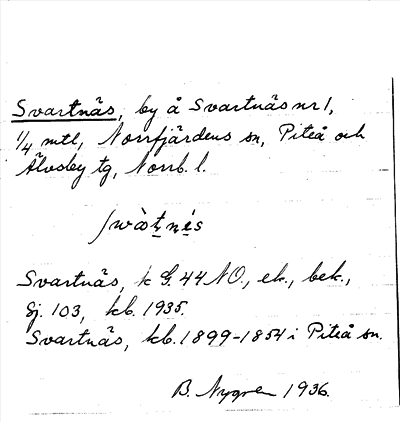 Svartnäs, by å Svartnäs nr 1,
1/4 mtl, Norrfjärdens sn, Piteå och
Älvsby tg, Norrb. l.
Svartnäs, k G. 44 NO., ek., bek.,
Gj. 103, kb. 1935.
Svartnäs, kb. 1899-1854 i Piteå sn.
B. Nygren 1936.